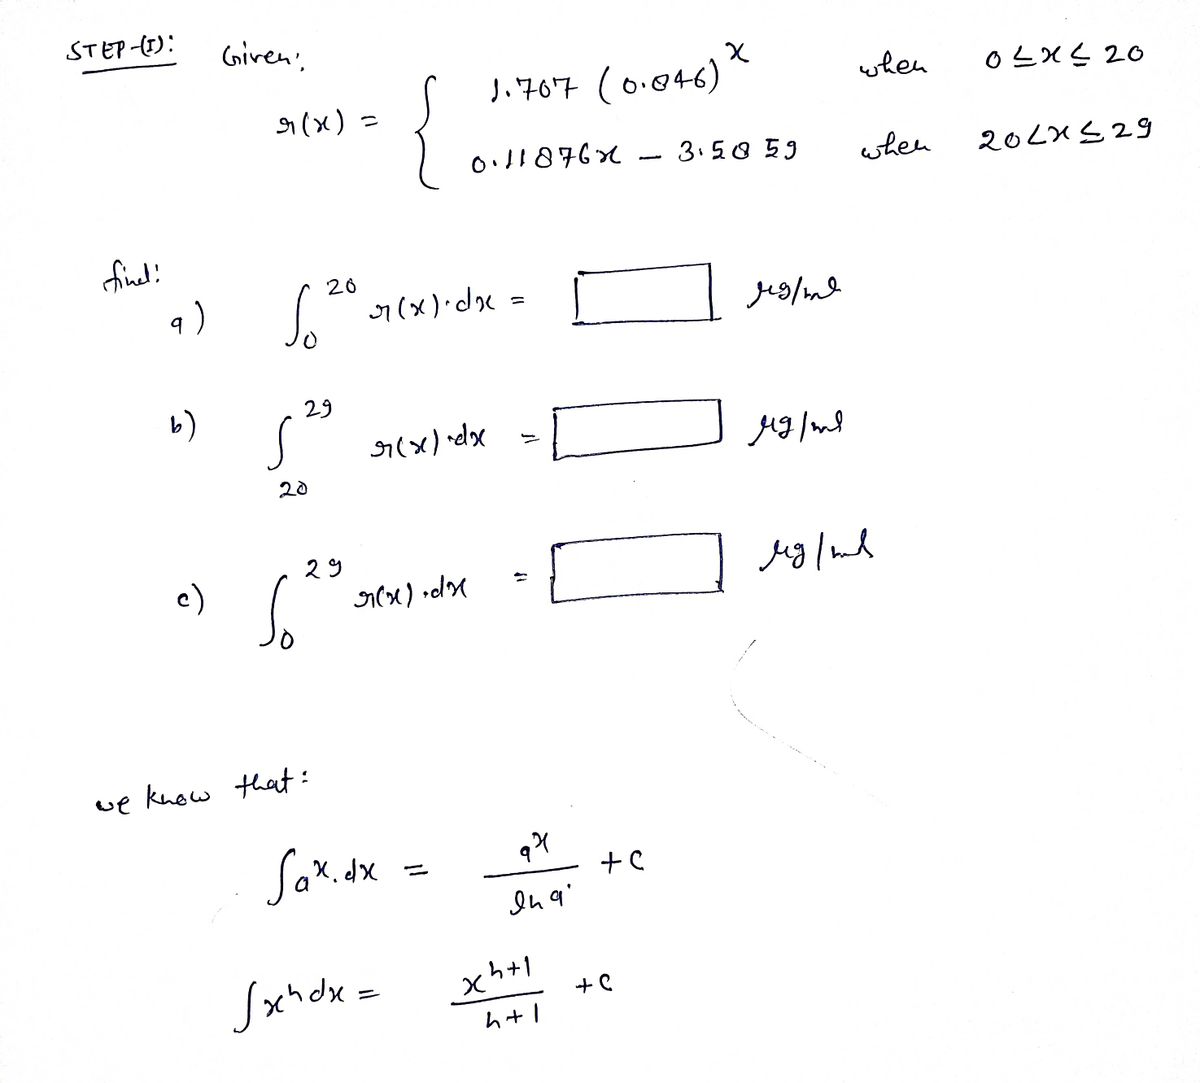 STEP-(I): Given:
r(x) = { 1.707 (0.846)^x when 0 ≤ x ≤ 20
0.11876x - 3.5859 when 20 < x ≤ 29
find:
a) ∫_0^20 r(x)·dx = μg/ml
b) ∫_20^29 r(x)·dx = μg/ml
c) ∫_0^29 r(x)·dx = μg/ml
we know that:
∫a^x.dx = a^x / ln a + c
∫x^n dx = x^(n+1) / (n+1) + c